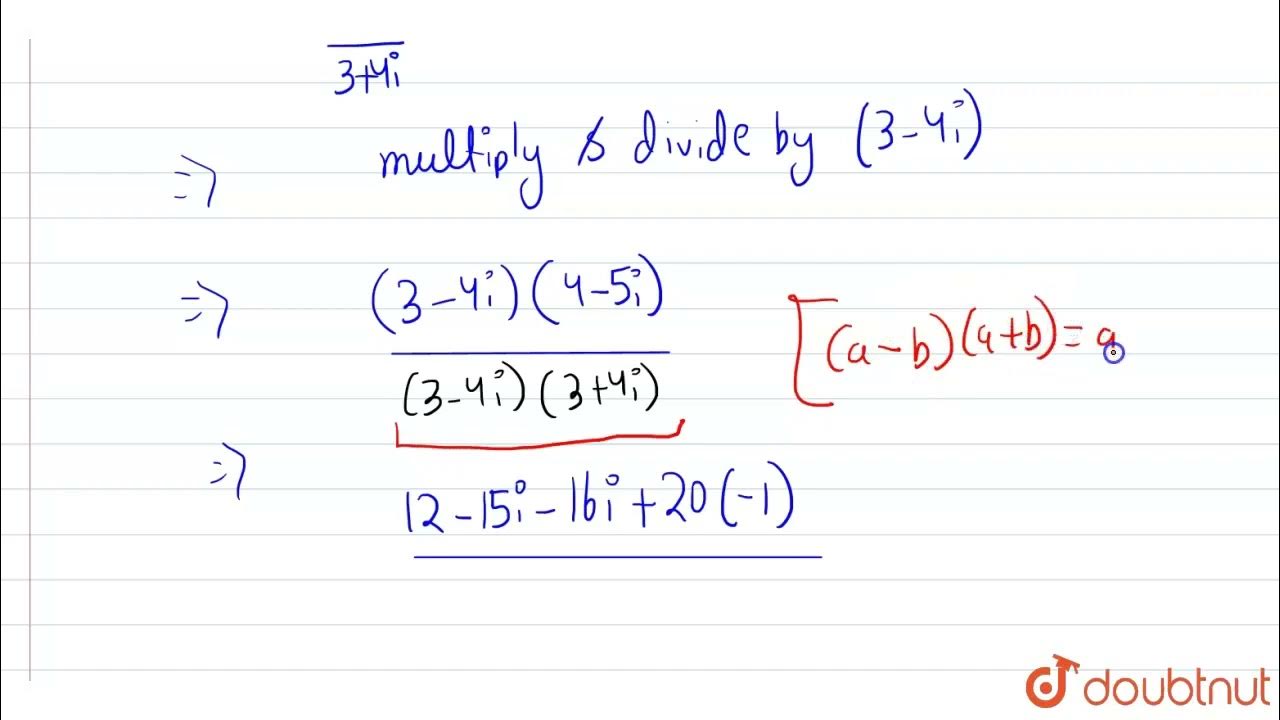 3+4i
⇒ multiply & divide by (3-4i)
⇒ (3-4i)(4-5i)
(3-4i)(3+4i)
[(a-b)(a+b)=a
⇒ 12-15i-16i+20(-1)
doubtnut